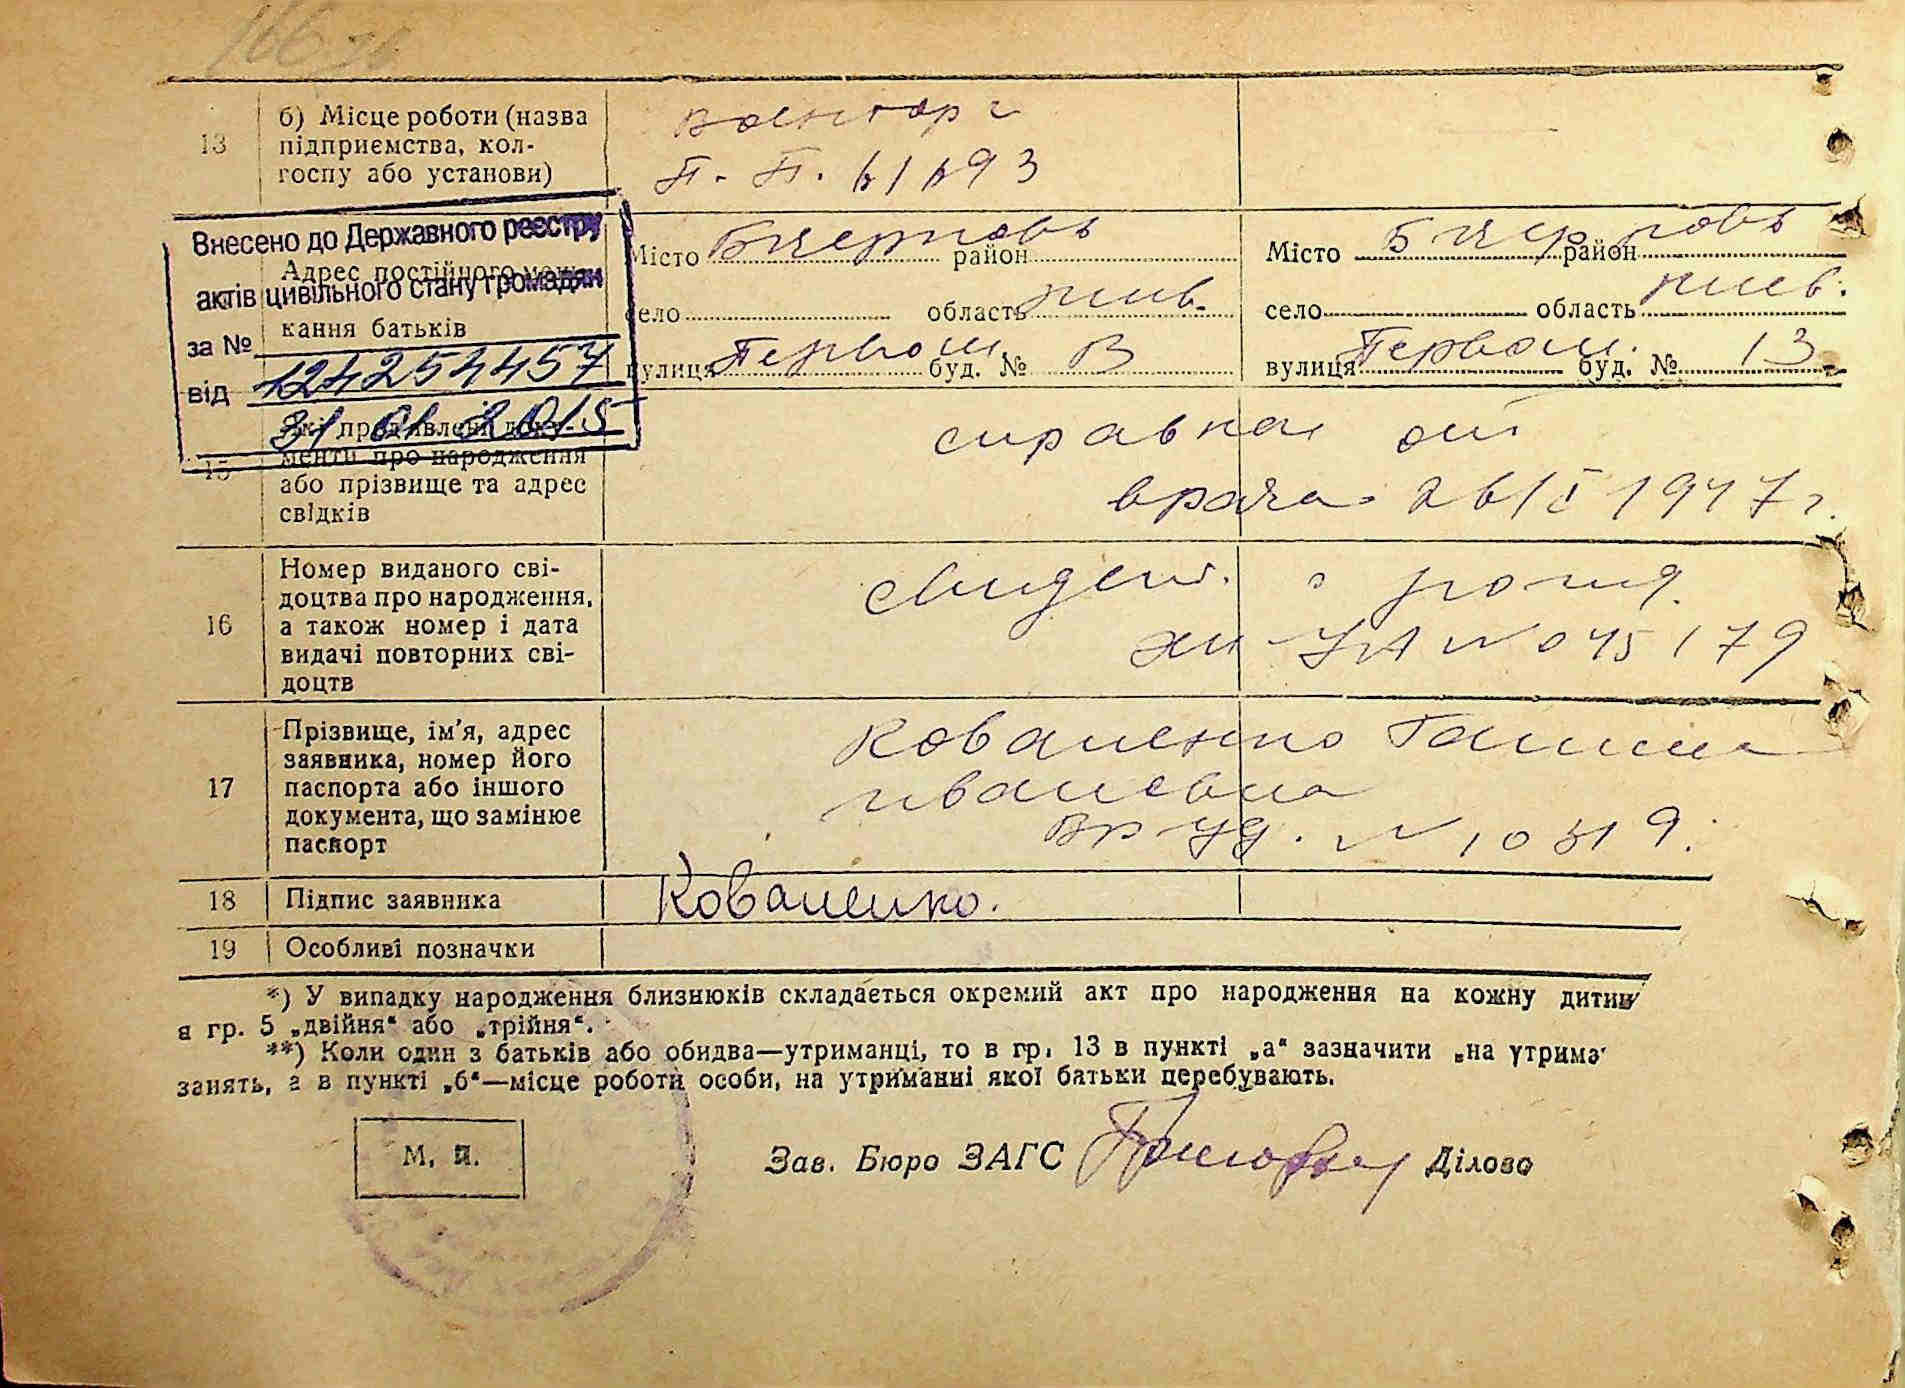 13
б) Місце роботи (назва
підприємства, кол-
госпу або установи)
Военторг
П. П. 61693
Внесено до Державного реєстру
актів цивільного стану громадян
за №
124254457
від
31 01 2015
Адрес постійного
кання батьків
Місто район
село область киев.
вулиця Первом. буд. № В
Місто район
село область киев.
вулиця Первом. буд. № 13
15
менти про народження
або прізвище та адрес
свідків
справка от
врача 26/I 1947 г.
16
Номер виданого сві-
доцтва про народження,
а також номер і дата
видачі повторних сві-
доцтв
свидет. о рожд.
УА № 045179
17
Прізвище, ім'я, адрес
заявника, номер його
паспорта або іншого
документа, що замінює
паспорт
Коваленко Галина
Ивановна
Вр уд. №
18
Підпис заявника
Коваленко.
19
Особливі позначки
*) У випадку народження близнюків складається окремий акт про народження на кожну дитину
в гр. 5 „двійня“ або „трійня“.
**) Коли один з батьків або обидва—утриманці, то в гр. 13 в пункті „а“ зазначити „на утрима
занять, а в пункті „б“—місце роботи особи, на утриманні якої батьки перебувають.
М. П.
Зав. Бюро ЗАГС
Діловод